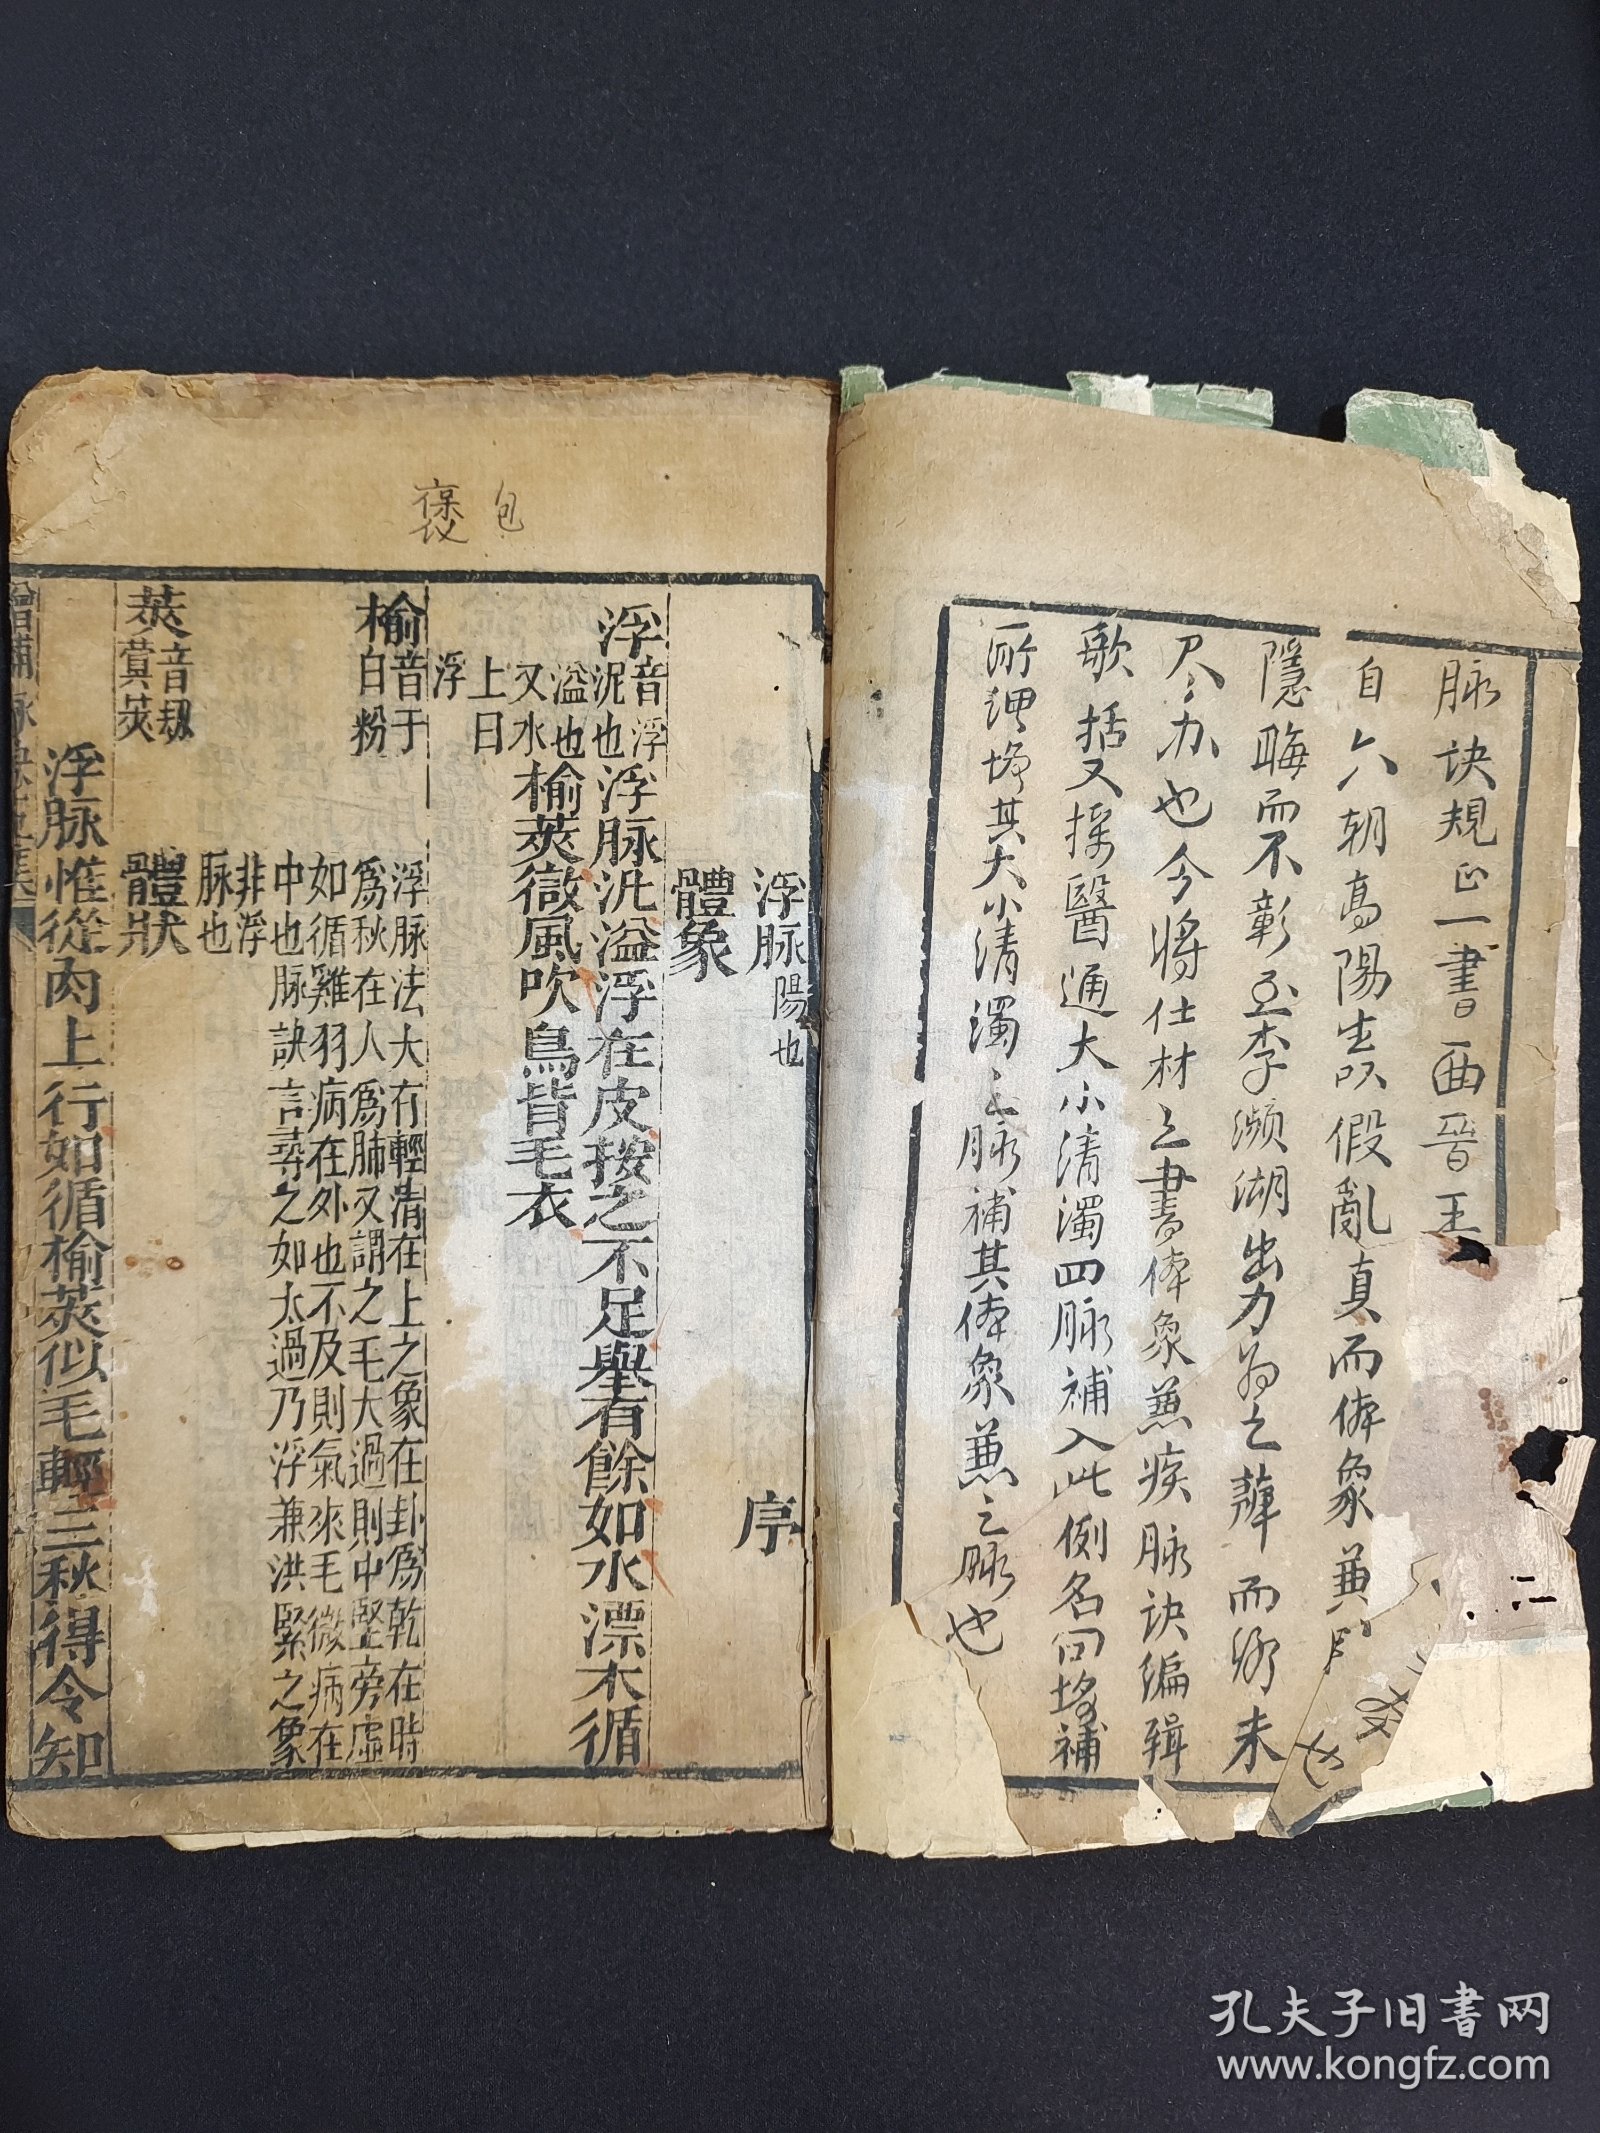 脉诀規正一書西晉王
自六朝高陽生以假亂真而体象兼
隱晦而不彰至李濒湖出力為之薛而繆未
尽力也今將仕材之書体象兼疾脉诀編辑
歌括又採醫通大小清濁四脉補入此例名曰增補
所謂增其大小清濁之脉補其体象兼之脉也
褒 包
浮脉陽也 序
體象
浮脉汎溢浮在皮按之不足舉有餘如水漂木循
榆莢微風吹鳥背毛衣
浮音浮泥也溢也又水上曰浮
榆音于白粉
浮脉法大有輕清在上之象在卦為乾在時
為秋在人為肺又謂之毛大過則中堅旁虛
如循雞羽病在外也不及則氣來毛微病在
中也脉訣言尋之如太過乃浮兼洪緊之象
非浮
脉也
莢音刼蓂莢
體狀
浮脉惟從肉上行如循榆莢似毛輕三秋得令知
增補脉訣
孔夫子旧書网
www.kongfz.com